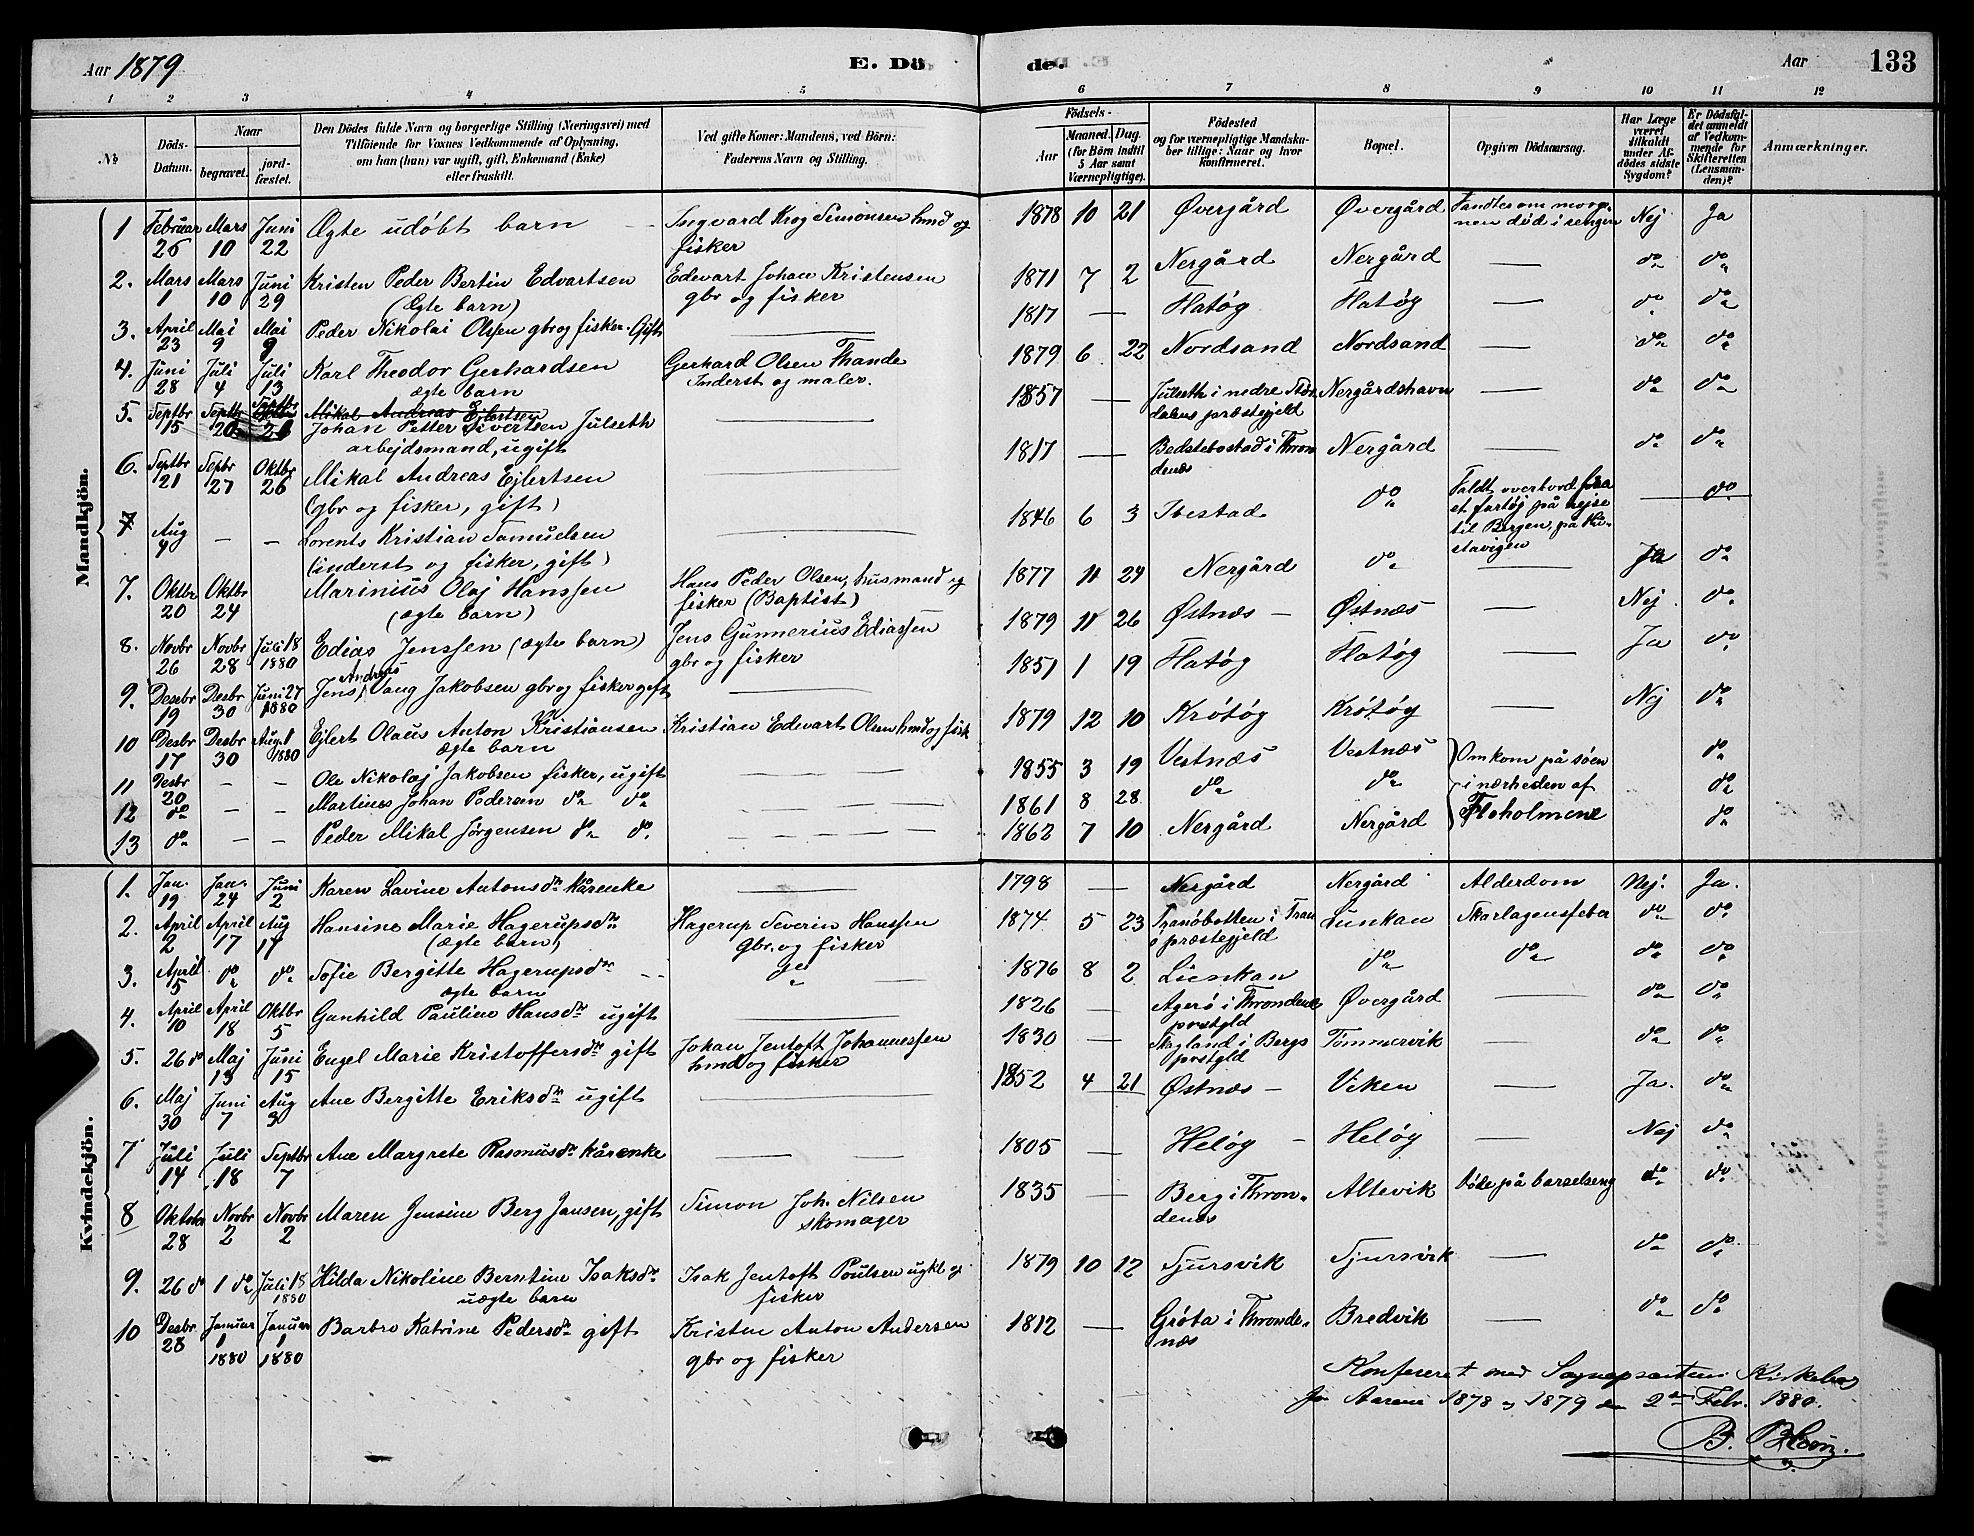 Aar 1879 E. Dö de. Aar 133
1 2 3 4 5 6 7 8 9 10 11 12
No Döds-Datum. Naar begravet. jord-fæstet. Den Dödes fulde Navn og borgerlige Stilling (Næringsvei) med Tilföiende for Voxnes Vedkommende af Oplysning, om han (hun) var ugift, gift, Enkemand (Enke) eller fraskilt. Ved gifte Koner: Mandens, ved Börn: Faderens Navn og Stilling. Födsels- Aar Maaned. Dag. (for Börn indtil 5 Aar samt Værnepligtige). Födested og for værnepligtige Mandskaber tillige: Naar og hvor konfirmeret. Bopæl. Opgiven Dödsaarsag. Har Læge været tilkaldt under Afdödes sidste Sygdom? Er Dödsfaldet anmeldt af Vedkommende for Skifteretten (Lensmanden)? Anmærkninger.
Mandkjön.
1 Februar 26 Mars 10 Juni 22 Ægte udøbt barn Ingvard Krog Simonsen hmd og fisker 1878 10 21 Øvergård Øvergård Fandtes om morgnen død i sengen Nej Ja
2. Mars 1 Mars 10 Juni 29 Kristen Peder Bertin Edvartsen (Ægte barn) Edevart Johan Kristensen gbr og fisker 1871 7 2 Nergård Nergård — do do
3. April 23 Mai 9 Mai 9 Peder Nikolai Olsen gbr og fisker. Gift — 1817 — Flatøg Flatøg — do do
4. Juni 28 Juli 4 Juli 13 Karl Theodor Gerhardsen ægte barn Gerhard Olsen Thande Inderst og maler. 1879 6 22 Nordsand Nordsand — do do
5. Septbr 15 Septbr 20 Septbr 21 Mikal Andreas Ejlertsen Johan Petter Sivertsen Julseth arbejdsmand, ugift — 1857 — Julseth i nedre Stördalens præstegjeld Nergårdshavn — do do
6. Septbr 21 Sepbr 27 Oktbr 26 Mikal Andreas Ejlertsen (gbr og fisker, gift) — 1817 — Bedstebostad i Throndenæs Nergård — do do
7 Aug 4 — — Lorents Kristian Samuelsen (inderst og fisker, gift) — 1846 6 3 Ibestad do Faldt overbord fra et fartøj på rejse til Bergen, på stavigen — do
7. Oktbr 20 Oktbr 24 Marinius Olaj Hanssen (ægte barn) Hans Peder Olsen, husmand og fisker (Baptist) 1877 11 24 Nergård do — Ja do
8. Novbr 26 Novbr 28 Juli 18 1880 Edias Jenssen (ægte barn) Jens Gunnerius Ediassen gbr og fisker 1879 11 26 Østnæs — Østnæs — Nej do
9. Desebr 19 Desbr 30 Juni 27 1880 Jens Andreas Vang Jakobsen gbr og fisker gift — 1851 1 19 Flatøg Flatøg Ja do
10 Desbr 17 Desbr 30 Aug. 1 1880 Ejlert Olaus Anton Kristiansen ægte barn Kristian Edevart Olsen hmd og fisk 1879 12 10 Krøtøg Krøtøg — Nej do
11 Desbr 20 — — Ole Nikolaj Jakobsen fisker, ugift — 1855 3 19 Vestnæs Vestnæs Omkom på søen do
12 do — — Martinus Johan Pedersen do do — 1861 8 28 do do i nærheden af do
13 do — — Peder Mikal Jørgensen do do — 1862 7 10 Nergård Nergård Floholmene do
Kvindekjön.
1. Jan. 19 Jan. 24 Juni 2 Karen Lavine Antonsdr kårenke — 1798 — Nergård Nergård Alderdom Nej. Ja.
2. April 2 April 17 Aug 17 Hansine Marie Hagerupsdr (ægte barn) Hagerup Severin Hanssen Gbr. og fisker 1874 5 23 Tranöbotten i Tranø præstegjeld Lunkan Skarlagensfeber do do
3. April 5 do do Sofie Bergitte Hagerupsdr ægte barn do 1876 8 2 Lienkan do do do do
4. April 10 April 18 Oktbr 5 Gunhild Pauline Hansdr ugift — 1826 — Agerø i Throndenæs prstgld Øvergård — do do
5. 26 do Maj 13 Juni 15 Engel Marie Kristoffersdr gift Johan Jentoft Johannessen hmd og fisker 1830 — Skagland i Bergs prstgld Tömmervik — do do
6. Maj 30 Juni 7 Aug 3 Ane Bergitte Eriksdr ugift — 1852 4 21 Østnæs — Viken — Ja. do
7 Juli 14 Juli 18 Septbr 7 Ane Margrete Rasmusdr kårenke — 1805 — Heløg — Heløg — Nej do
8 Oktober 28 Novbr 2 Novbr 2 Maren Jensine Berg Jansen, gift Simon Joh. Nilsen skomager 1835 — Berg i Throndenæs Altevik Døde på barselseng do do
9. 26 do 1 do Juli 18 1880 Hilda Nikoline Berntine Isaksdr uægte barn Isak Jentoft Poulsen ugkl og fisker 1879 10 12 Tjursvik Tjursvik — do do
10 Desbr 28 Januar 1 1880 Januar 1 1880 Barbro Katrine Pedersdr gift Kristen Anton Andersen gbr og fisker 1812 — Gröta i Throndenæs Bredvik — do do
Konfereret med Sognepræstens Kirkebog
for Aarene 1878 og 1879 den 2den Febr. 1880.